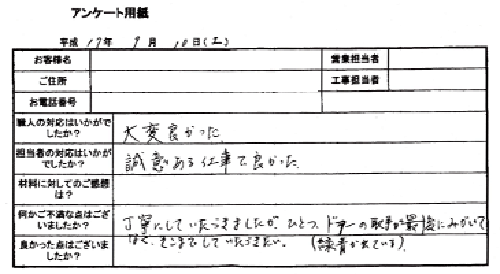 アンケート用紙
平成 17年 9月 10日(土)
お客様名
営業担当者
ご住所
工事担当者
お電話番号
職人の対応はいかがで
したか？
大変良かった
担当者の対応はいかが
でしたか？
誠意ある仕事で良かった
材料に対してのご感想
は？
何かご不満な点はござ
いましたか？
丁寧にしていただきましたが、ひとつ、ドアーの取手が最後にみがいて
良かった点はございま
したか？
そこまでしていただきたい。 (緑青が出ている)